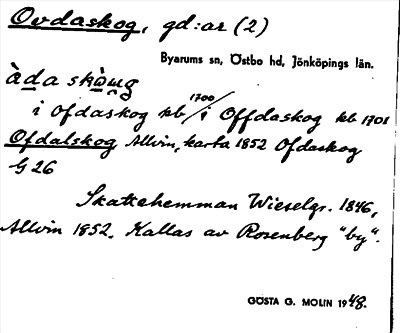 Ovdaskog, gd:ar (2)
Byarums sn, Östbo hd, Jönköpings län.
àda skòug
i Ofdaskog kb 1700/ i Offdaskog kb 1701
Ofdalskog Allvin, karta 1852 Ofdaskog
G 26
Skattehemman Wieselgr. 1846,
Allvin 1852. Kallas av Rosenberg "by".
GÖSTA G. MOLIN 1948.